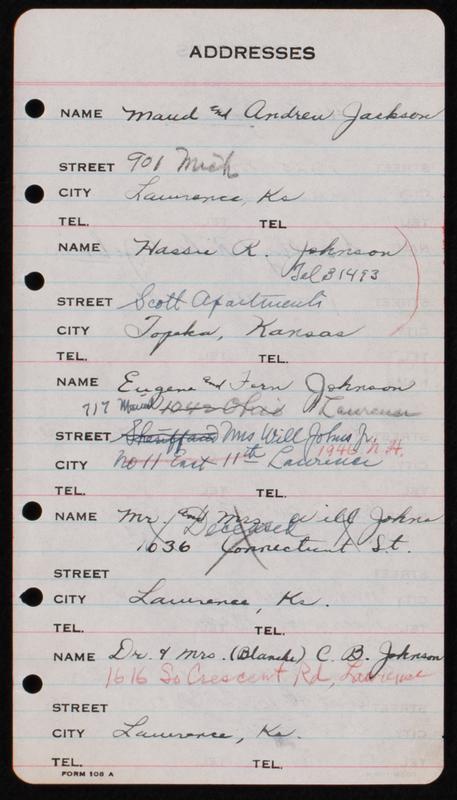 ADDRESSES
NAME Maud and Andrew Jackson
STREET 901 Mich
CITY Lawrence, Ks
TEL. TEL
NAME Hassie K. Johnson
Tel 31493
STREET Scott Apartments
CITY Topeka, Kansas
TEL. TEL.
NAME Eugene and Fern Johnson
717 1042 Ohio Lawrence
STREET Sheriff and Mrs Will Johns Jr.
1946 N.H.
CITY No 11 East 11th Lawrence
TEL. TEL.
NAME Mr. and Mrs. Will Johns
Deceased
1036 Connecticut St.
STREET
CITY Lawrence, Ks.
TEL. TEL.
NAME Dr. & Mrs. (Blanche) C. B. Johnson
1616 So Crescent Rd, Lawrence
STREET
CITY Lawrence, Ks.
TEL. TEL.
FORM 106 A